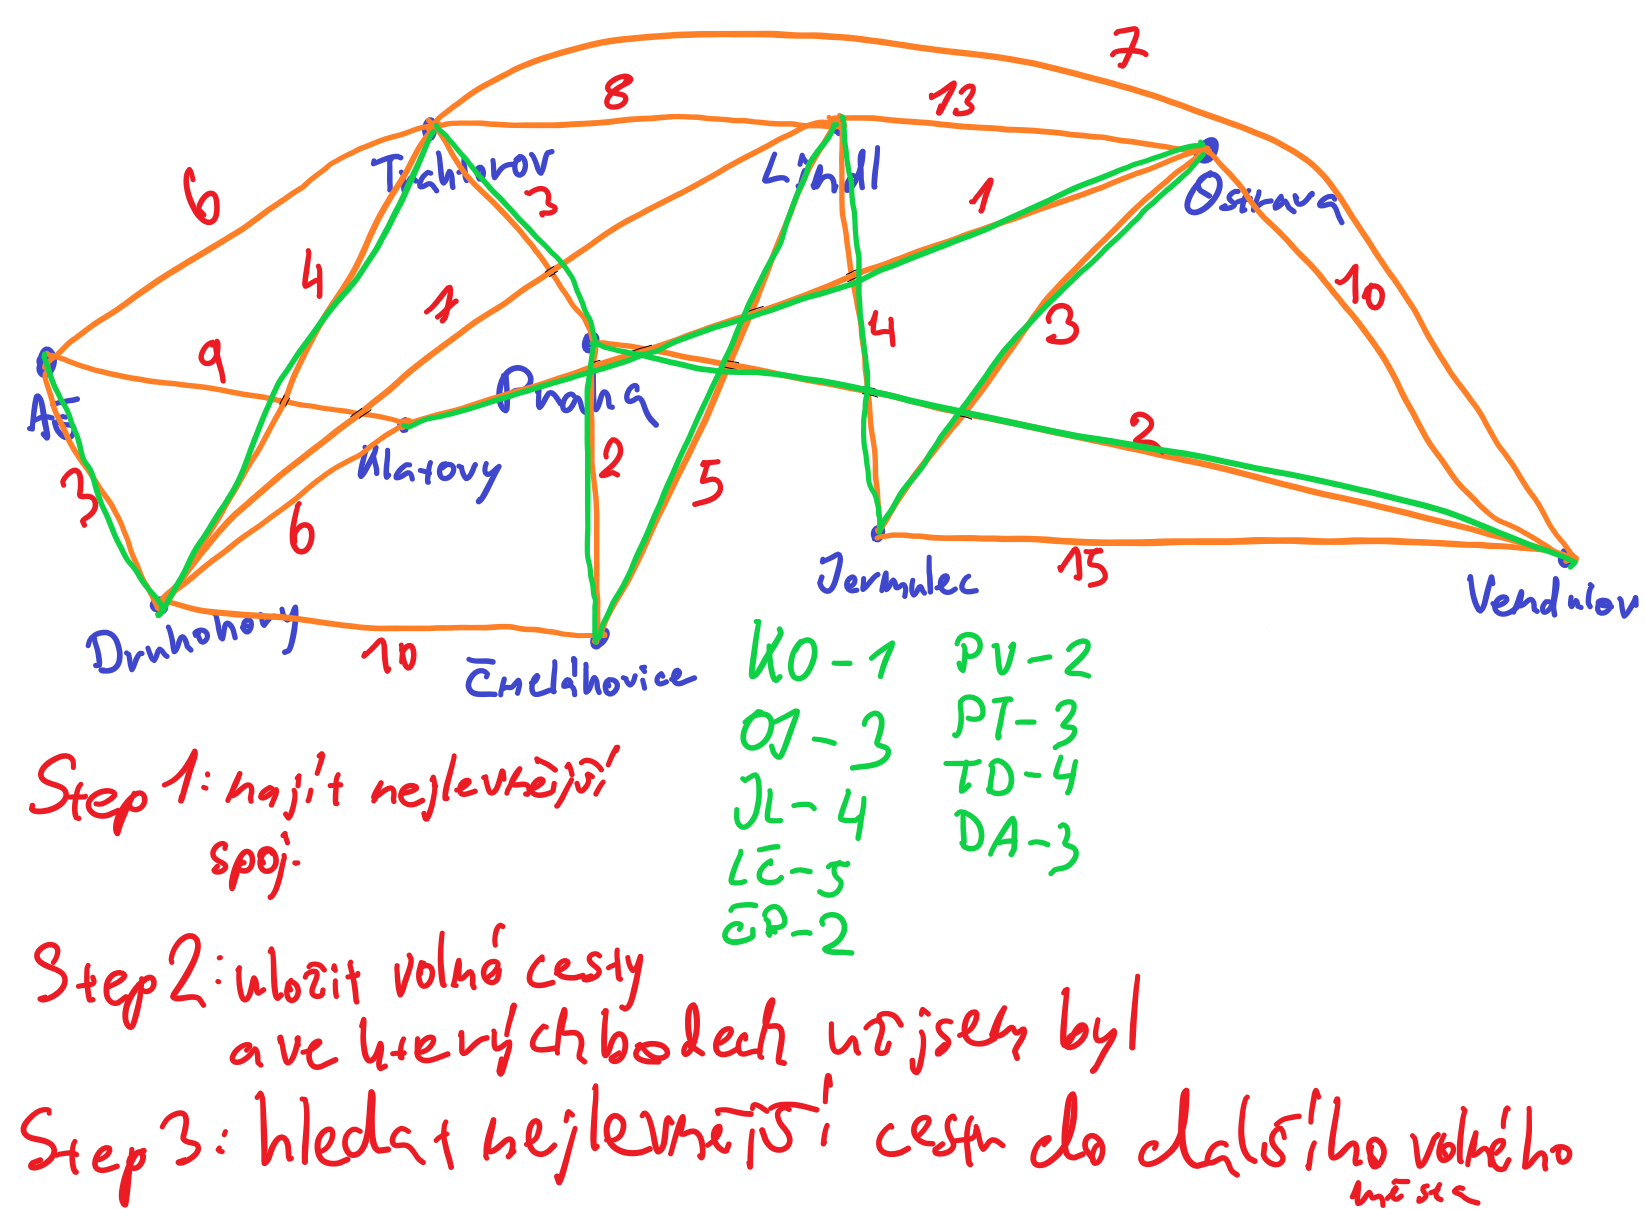 7
8
13
Trahorov
Lindl
6
3
1
Ostrava
4
1
10
9
4
3
Praha
Aš
Klatovy
2
5
2
3
6
Jermulec
15
Vendulov
Druhohory
10
Čmelákovice
KO-1 PV-2
OJ-3 PT-3
JL-4 TD-4
LČ-5 DA-3
ČP-2
Step 1: najít nejlevnější
spoj.
Step 2: uložit volné cesty
a ve kterých bodech už jsem byl
Step 3: hledat nejlevnější cestu do dalšího volného
města